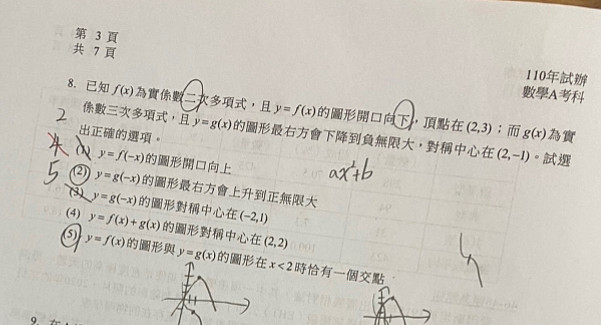 第 3 頁
共 7 頁
110年試辦
數學A考科
8. 已知 f(x)為實係數二次多項式，且 y=f(x)的圖形開口向下，頂點在(2,3)；而 g(x)為實
係數三次多項式，且 y=g(x)的圖形最右方會下降到負無限大，對稱中心在(2,−1)。試選
出正確的選項。
2
4
5
(1) y=f(−x)的圖形開口向上
(2) y=g(−x)的圖形最右方會上升到正無限大
(3) y=g(−x)的圖形對稱中心在(−2,1)
(4) y=f(x)+g(x)的圖形對稱中心在(2,2)
(5) y=f(x)的圖形與 y=g(x)的圖形在 x<2時恰有一個交點
ax²+b
9.